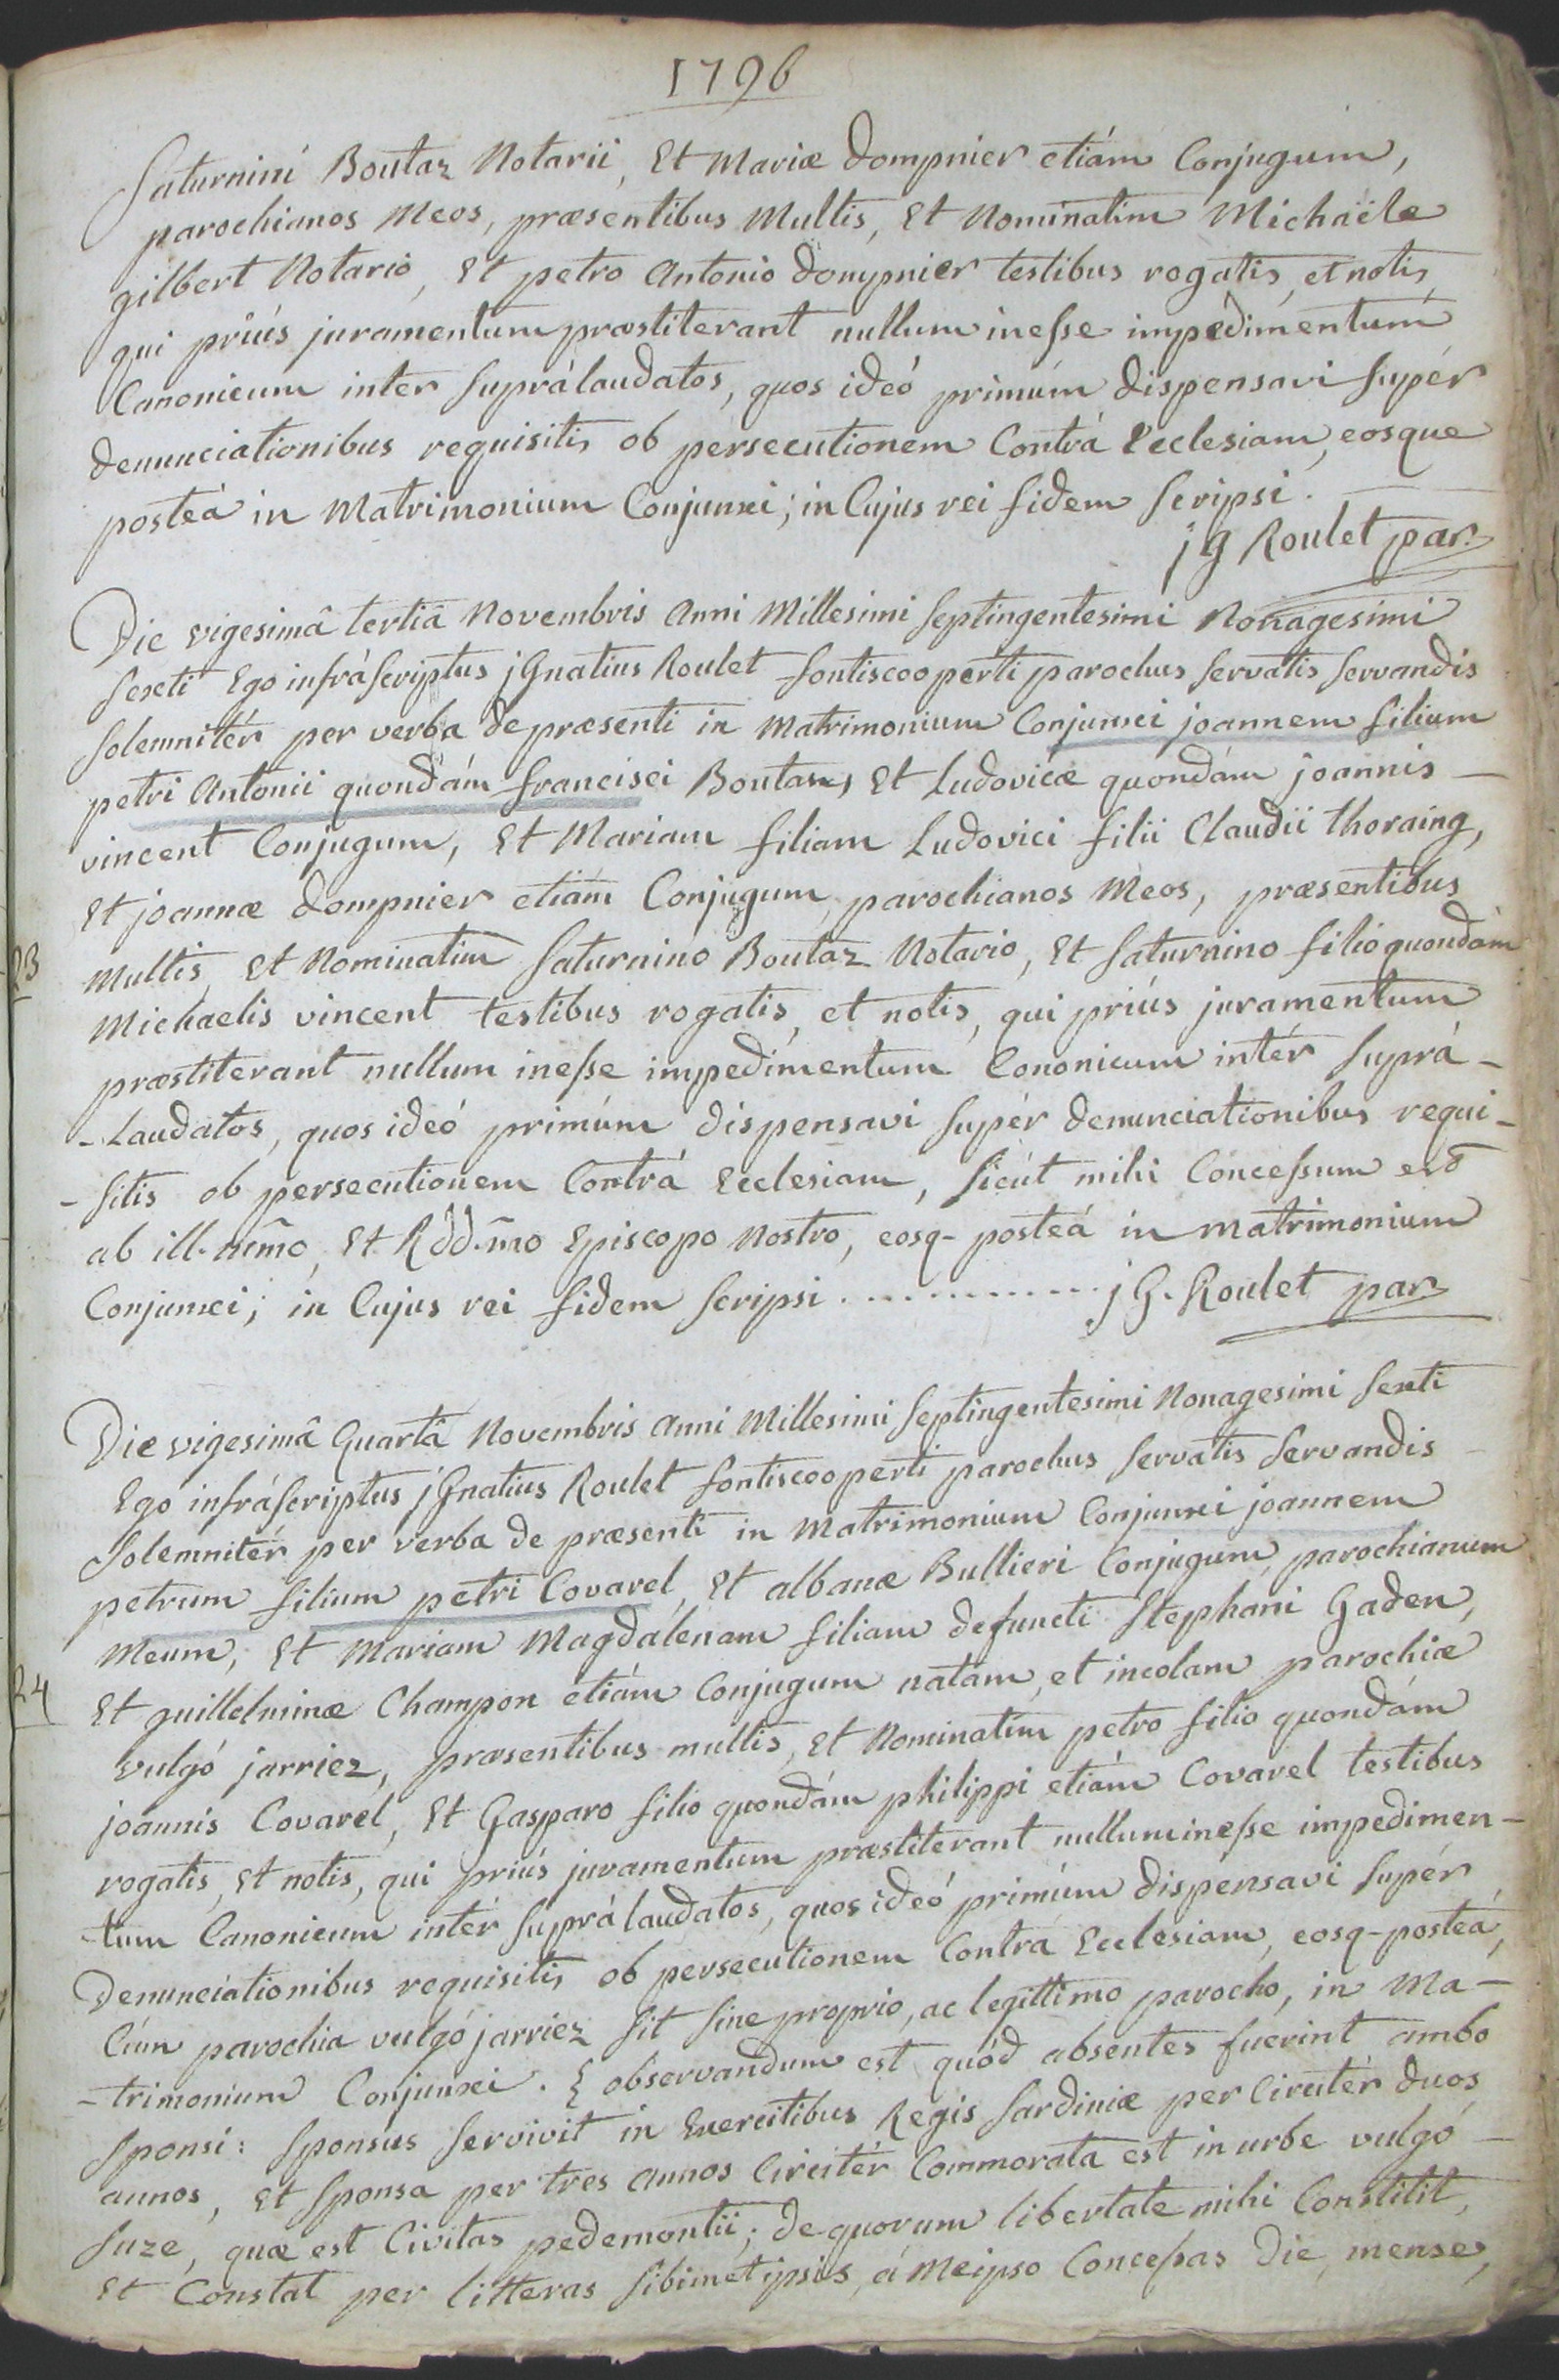 1796
Saturnini Boutaz Notarii, Et Mariæ Dompnier etiám Conjugum,
parochianos Meos, præsentibus Multis, Et Nominatim Michaële
gilbert Notario, Et petro Antonio Dompnier testibus rogatis, et notis,
qui priús juramentum præstiterant nullum inesse impedimentum
Canonicum inter suprálaudatos, quos ideó primúm dispensavi supér
denunciationibus requisitis ob persecutionem Contrá Ecclesiam, eosque
posteá in Matrimonium Conjunxi; in Cujus rei fidem scripsi.
jg Roulet par.
Die vigesimâ tertiâ Novembris Anni Millesimi septingentesimi Nonagesimi
sexti Ego infráscriptus jgnatius Roulet fontiscooperti parochus servatis servandis
solemnitér per verba de præsenti in Matrimonium Conjunxi joannem filium
petri Antonii quondám francisci Boutaz, Et Ludovicæ quondám joannis —
vincent Conjugum, Et Mariam filiam Ludovici filii Claudii thoraing,
Et joannæ Dompnier etiám Conjugum, parochianos Meos, præsentibus
23
Multis, Et Nominatim Saturnino Boutaz Notario, Et Saturnino filio quondám
Michaelis vincent testibus rogatis, et notis, qui priús juramentum
præstiterant nullum inesse impedimentum Cononicum intér suprá-
-Laudatos, quos ideó primúm dispensavi supér denunciationibus requi-
-sitis ob persecutionem Contrá Ecclesiam, sicút mihi Concessum est
ab ill.mo, Et Rdd.mo Episcopo Nostro, eosq- posteá in matrimonium
Conjunxi; in Cujus rei fidem scripsi ............. jG. Roulet par
Die vigesimâ Quartâ Novembris Anni Millesimi septingentesimi Nonagesimi sexti
Ego infráscriptus jgnatius Roulet fontiscooperti parochus servatis servandis —
solemnitér per verba de præsenti in Matrimonium Conjunxi joannem
petrum filium petri Covarel, Et albanæ Bullieri Conjugum, parochianum
Meum, Et Mariam Magdalenam filiam defuncti Stephani Gaden,
24
Et guillelminæ Champon etiám Conjugum natam, et incolam parochiæ
vulgó jarriez, præsentibus multis, Et Nominatim petro filio quondám
joannis Covarel, Et Gasparo filio quondám philippi etiám Covarel testibus
rogatis, Et notis, qui priús juramentum præstiterant nullum inesse impedimen-
-tum Canonicum intér suprálaudatos, quos ideó primúm dispensavi supér
denunciationibus requisitis ob persecutionem Contrá Ecclesiam, eosq- posteá,
Cúm parochia vulgó jarriez sit sine proprio, ac legittimo parocho, in Ma-
-trimonium Conjunxi. & observandum est quód absentes fuerint ambo
sponsi: sponsus servivit in Exercitibus Regis Sardiniæ per Circitér duos
annos, Et sponsa per tres annos Circitér Commorata est in urbe vulgó —
suze, quæ est Civitas pedemontii; de quorum libertate mihi Constitit,
Et Constat per litteras sibimetipsis, á Meipso Concessas die, mense,